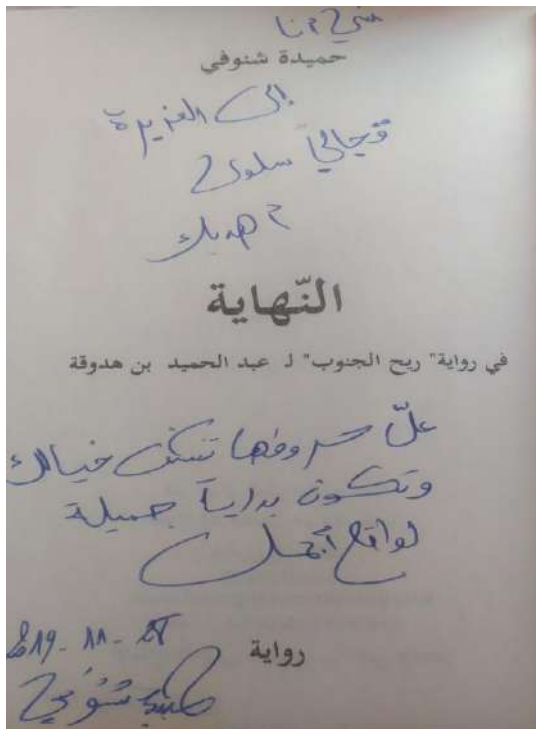 حميدة شنوفي
إلى العزيزة
قجالي سلوى
أهديك
النّهاية
في رواية" ريح الجنوب" لـ عبد الحميد بن هدوقة
علّ حروفها تسكن خيالك
وتكون بداية جميلة
لواقع أجمل
رواية
شنوفي